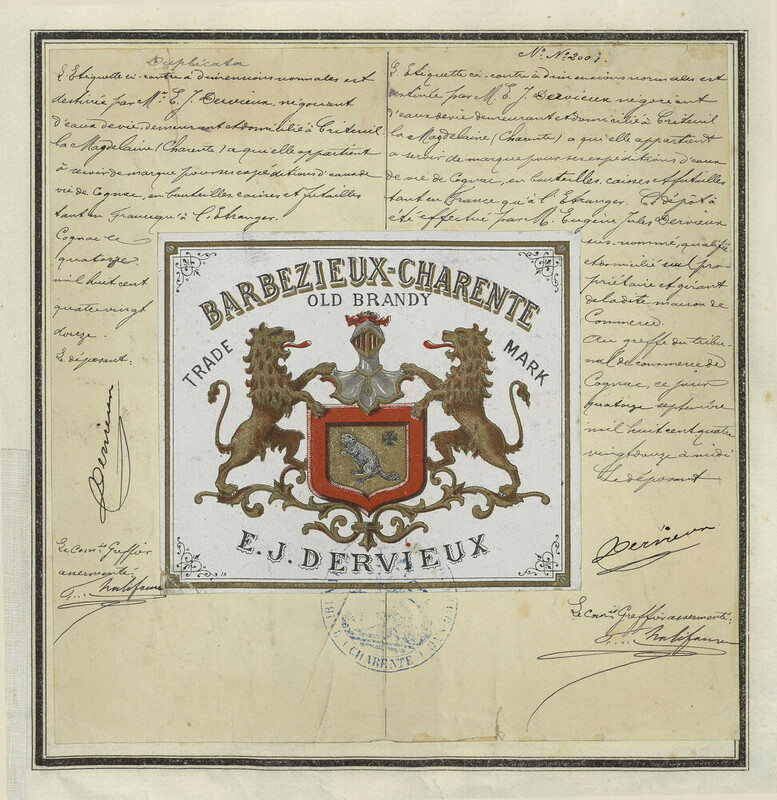 Duplicata
L'Etiquette ci-contre à dimensions normales est
destinée par Mr. E. J. Dervieux, négociant
d'eaux de vie, demeurant et domicilié à Criteuil
la Magdelaine (Charente) a qu'elle appartient
à servir de marque pour ses expéditions d'eaux de
vie de Cognac, en bouteilles, caisses et futailles
tant en France qu'à l'Etranger.
Cognac le
quatorze
mil huit cent
quatre vingt
douze.
Le déposant:
Dervieux
Le Comis Greffier
assermenté
No. No 2001.
L'Etiquette ci-contre à dimensions normales est
destinée par M. E. J. Dervieux négociant
d'eaux de vie demeurant et domicilié à Criteuil
la Magdelaine (Charente) a qu'elle appartient
à servir de marque pour ses expéditions d'eaux
de vie de Cognac, en bouteilles, caisses et futailles
tant en France qu'à l'Etranger. Ce dépôt à
été effectué par M. Eugène Jules Dervieux
sus-nommé, qualifié
et domicilié seul pro-
priétaire et gérant
de la dite maison de
Commerce.
Au greffe du tribu-
nal de commerce de
Cognac, ce jour
quatorze septembre
mil huit cent quatre
vingt douze à midi
Le déposant
Dervieux
Le comis Greffier assermenté:
BARBEZIEUX-CHARENTE
OLD BRANDY
TRADE MARK
E.J. DERVIEUX
(CHARENTE)